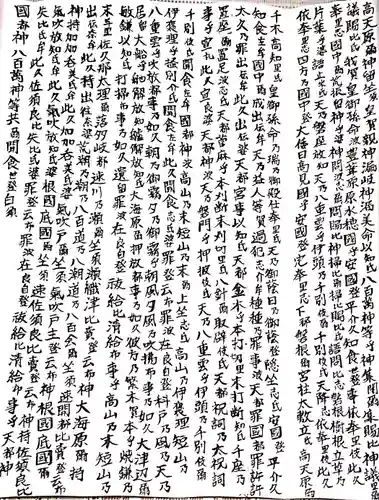 高天原爾神留坐皇賀親神漏岐神漏美命以知弖八百萬神等乎神集閇爾集賜比神議里
議賜比弖我賀皇御孫命波豊葦原水穂國乎安國登平介久知食世登事依奉里支此久
依奉里志國中爾荒振神等乎婆神問波志爾問賜比神掃比爾掃賜比弖語問比志磐根樹根立草乃
片葉乎母語止米弖天乃磐座放知天乃八重雲乎伊頭乃千別伎爾千別伎弖天降志依奉里支此久
依奉里志四方乃國中登大倭日高見國乎安國登定奉里弖下都磐根爾宮柱太敷立弖高天原爾
千木高知弖皇御孫命乃瑞乃御殿仕奉里弖天乃御蔭日乃御蔭登隱坐志弖安國登平介久
知食左牟國中爾成出伝牟天乃益人等賀過犯志介牟種種乃罪事波天都罪國都罪許許
太久乃罪出伝牟此久出伝婆天都宮事以知弖天都金木乎本打切里末打断知弖千座乃
置座爾置足波志弖天都菅麻乎本刈断末刈切里弖八針爾取辟伎弖天都祝詞乃太祝詞
事乎宣礼此久宣良婆天都神波天乃磐門乎押披伎弖天乃八重雲乎伊頭乃千別伎爾
千別伎弖聞食左牟國都神波高山乃末短山乃末爾上坐弖高山乃伊褒理短山乃
伊褒理乎掻別介弖聞食左牟此久聞食志弖婆罪登云布罪波在良自登科戸乃風乃天乃
八重雲乎吹放都事乃如久朝乃御霧夕乃御霧乎朝風夕風乃吹掃布事乃如久大津辺爾
居留大船乎舳解放知艫解放知弖大海原爾押放都事乃如久彼方乃繁木賀本乎焼鎌乃
敏鎌以知弖打掃布事乃如久遺留罪波在良自登祓給比清給布事乎高山乃末短山乃
末与里佐久那太理爾落多岐都速川乃瀬爾坐須瀬織津比賣登云布神大海原爾持
出伝奈牟此久持出伝奈婆荒潮乃潮乃八百道乃八潮道乃潮乃八百会爾坐須速開都比賣登云布
神持加加呑美弖牟此久加加呑美弖婆氣吹戸爾坐須氣吹戸主登云布神根國底國爾
氣吹放知弖牟此久氣吹放知弖婆根國底國爾坐須速佐須良比賣登云布神持佐須良比
失比弖牟此久佐須良比失比弖婆罪登云布罪波在良自登祓給比清給布事乎天都神
國都神八百萬神等共爾聞食世登白須